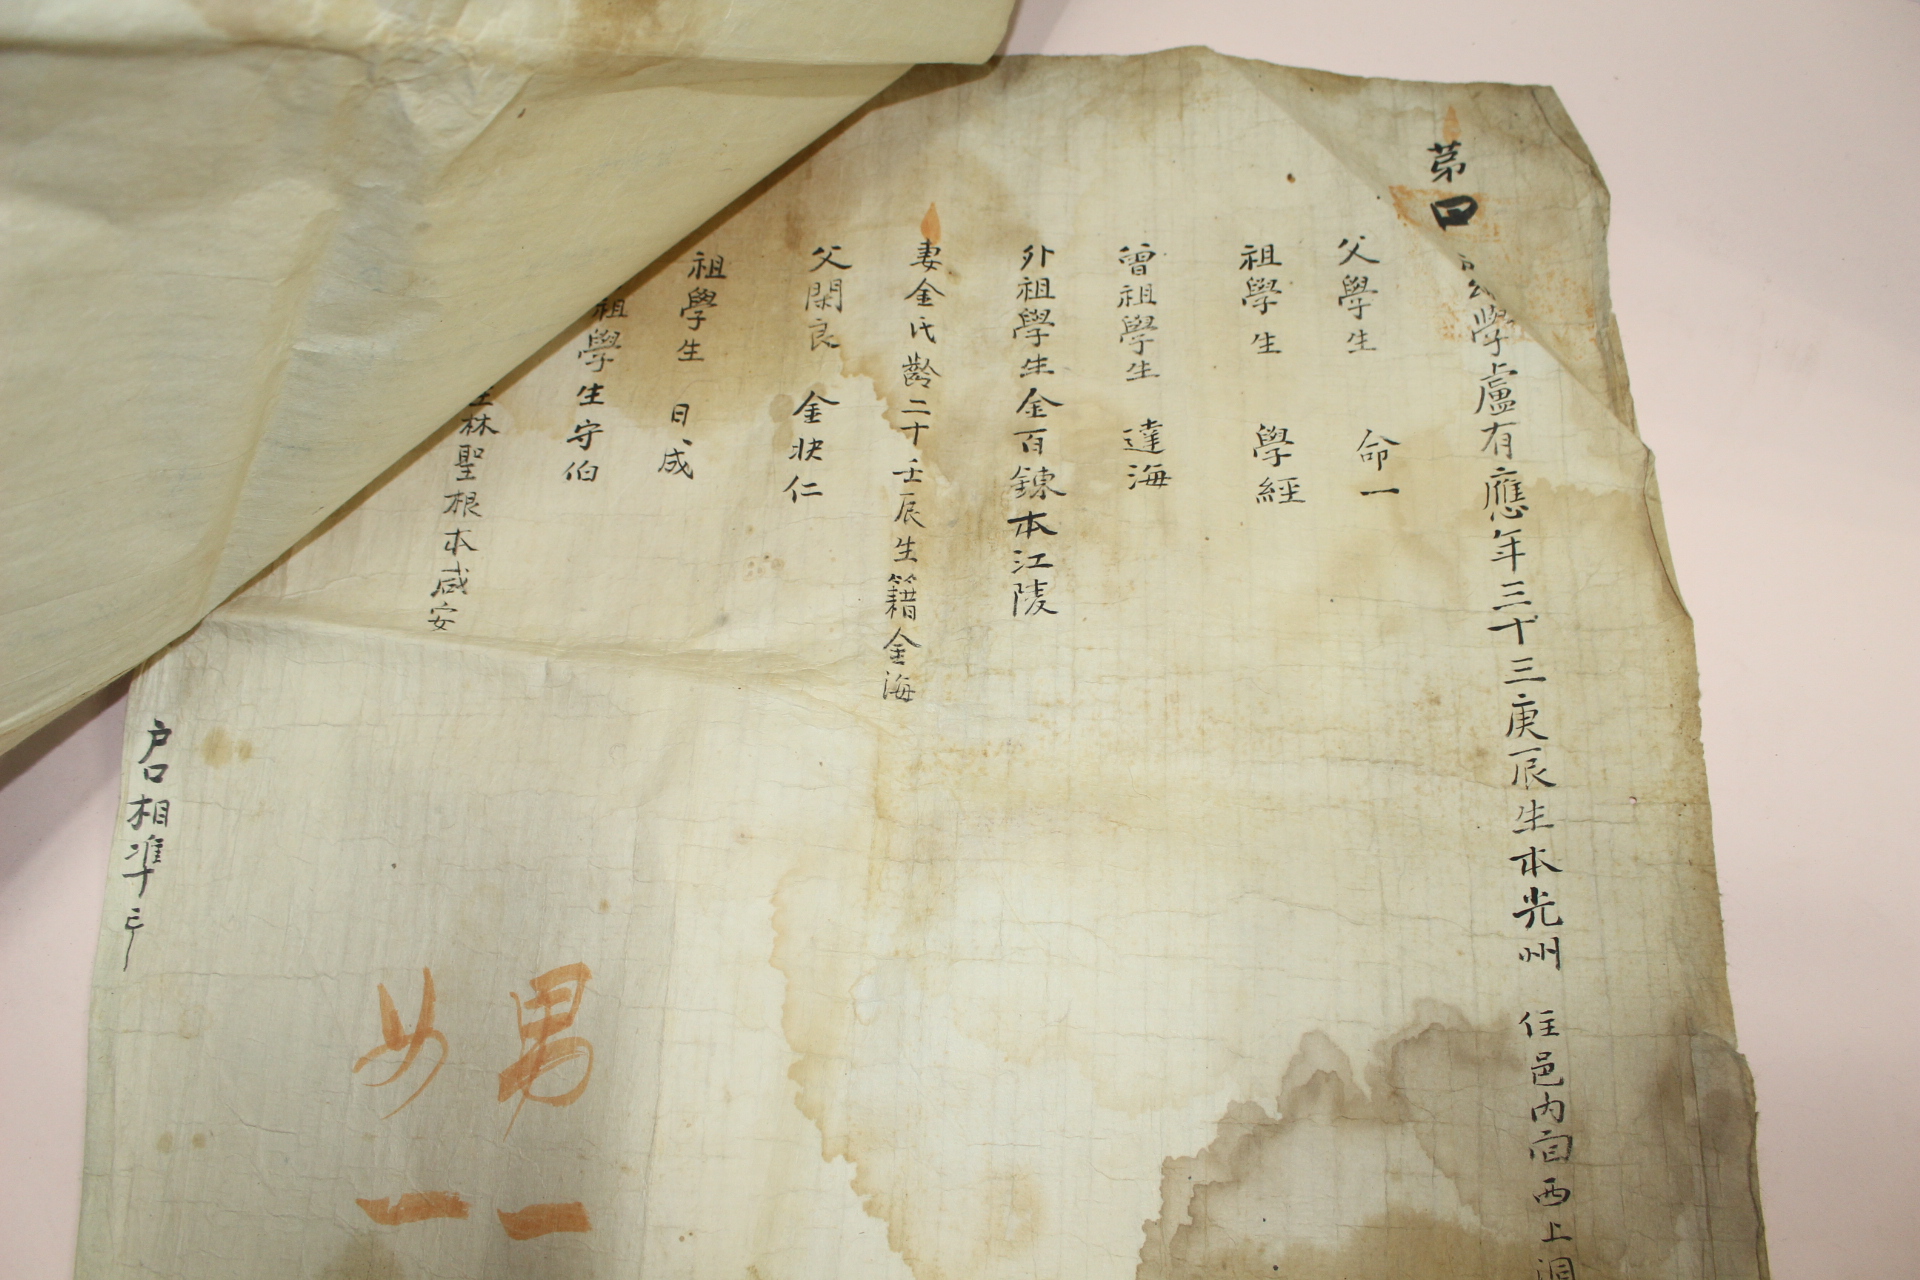 第四
學盧有應年三十三庚辰生本光州 住邑內面西上洞
父學生 命一
祖學生 學經
曾祖學生 達海
外祖學生金百鍊本江陵
妻金氏齡二十壬辰生籍金海
父閑良 金狀仁
祖學生 日成
祖學生守伯
生林聖根本咸安
戶口相準印
男一
女一